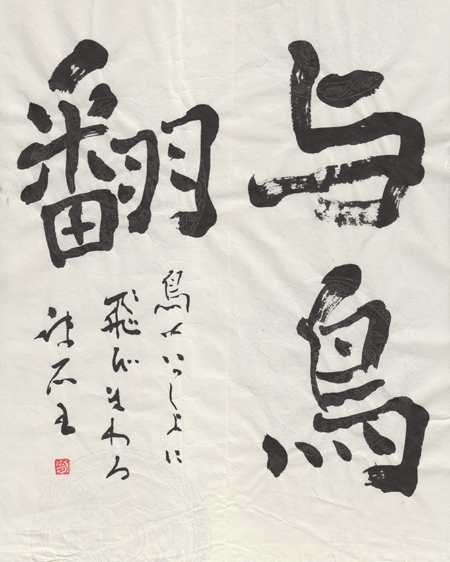 与鳥
翻
鳥といっしょに
飛びまわる